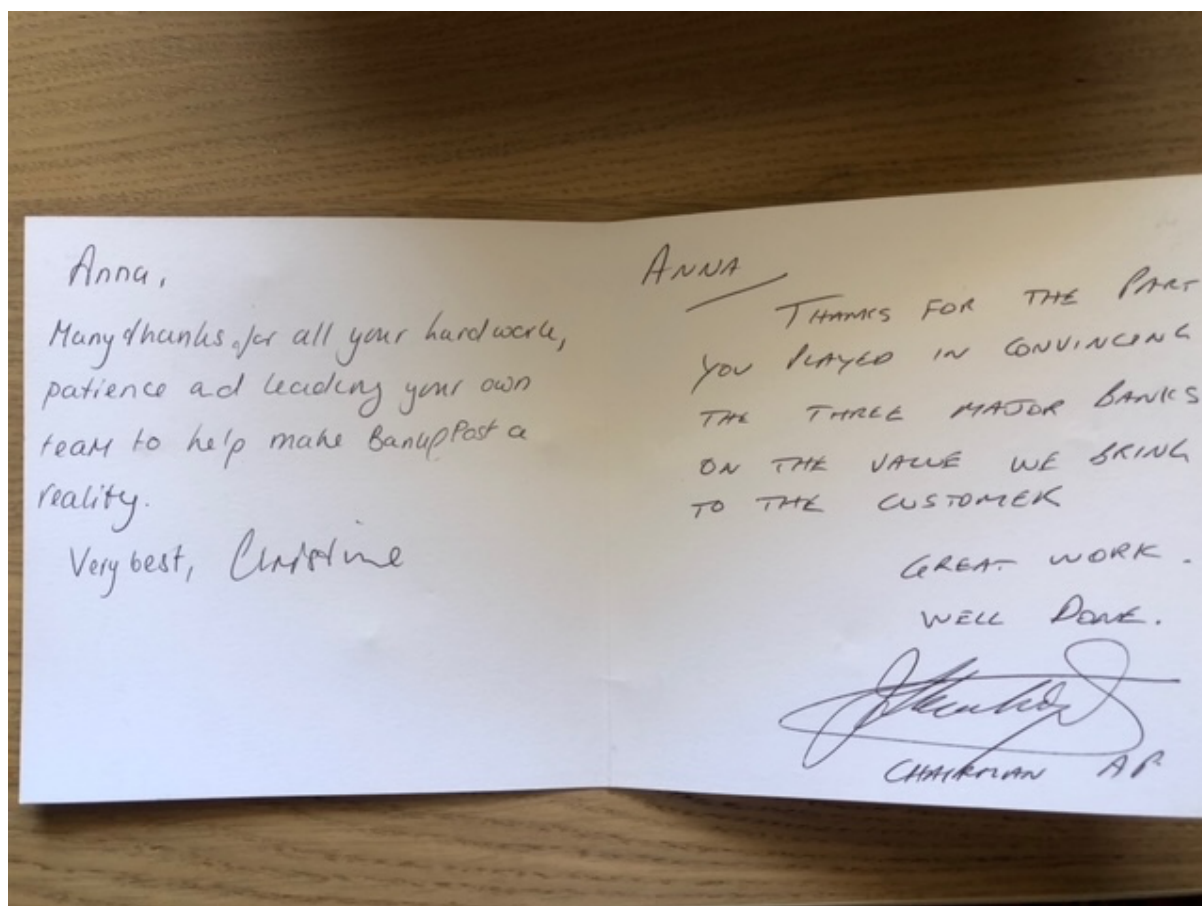 Anna,
Many thanks for all your hard work,
patience ad leading your own
team to help make Bank@Post a
reality.
Very best, Christine
ANNA
THANKS FOR THE PART
YOU PLAYED IN CONVINCING
THE THREE MAJOR BANKS
ON THE VALUE WE BRING
TO THE CUSTOMER
GREAT WORK.
WELL DONE.
CHAIRMAN AP